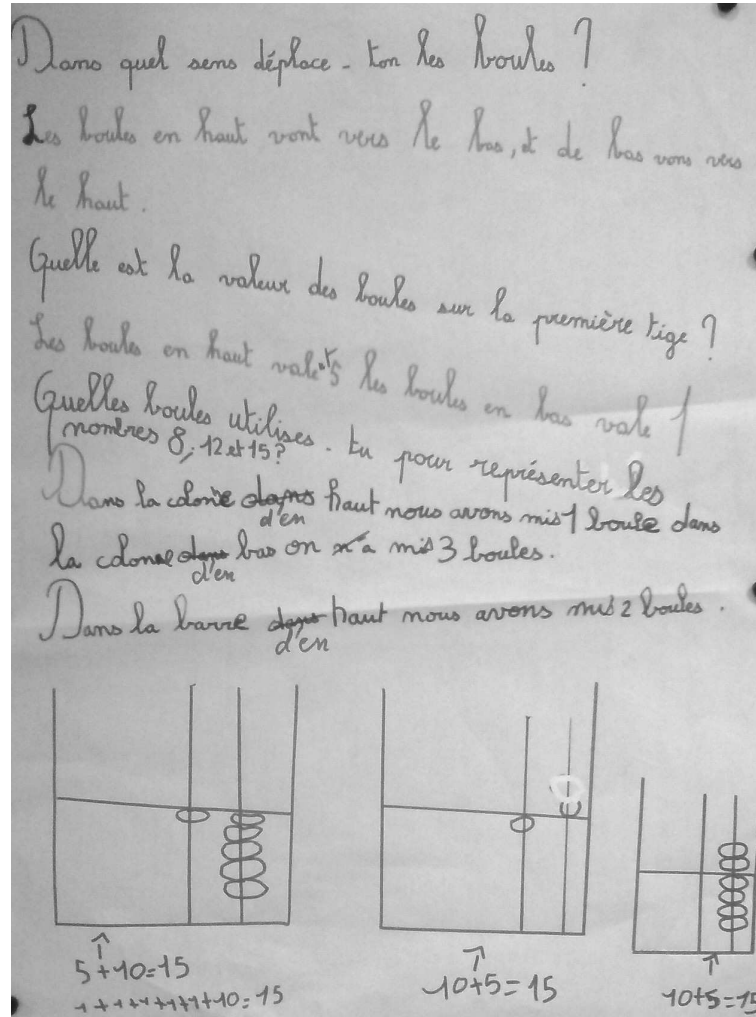 Dans quel sens déplace-ton les boules ?
Les boules en haut vont vers le bas, et de bas vons vers
le haut.
Quelle est la valeur des boules sur la première tige ?
Les boules en haut valent 5 les boules en bas vale 1
Quelles boules utilises-tu pour représenter les
nombres 8, 12 et 15 ?
Dans la colonne d'en haut nous avons mis 1 boule dans
la colonne d'en bas on a mis 3 boules.
Dans la barre d'en haut nous avons mis 2 boules.
5+10=15
1+1+1+1+1+10=15
10+5=15
10+5=15